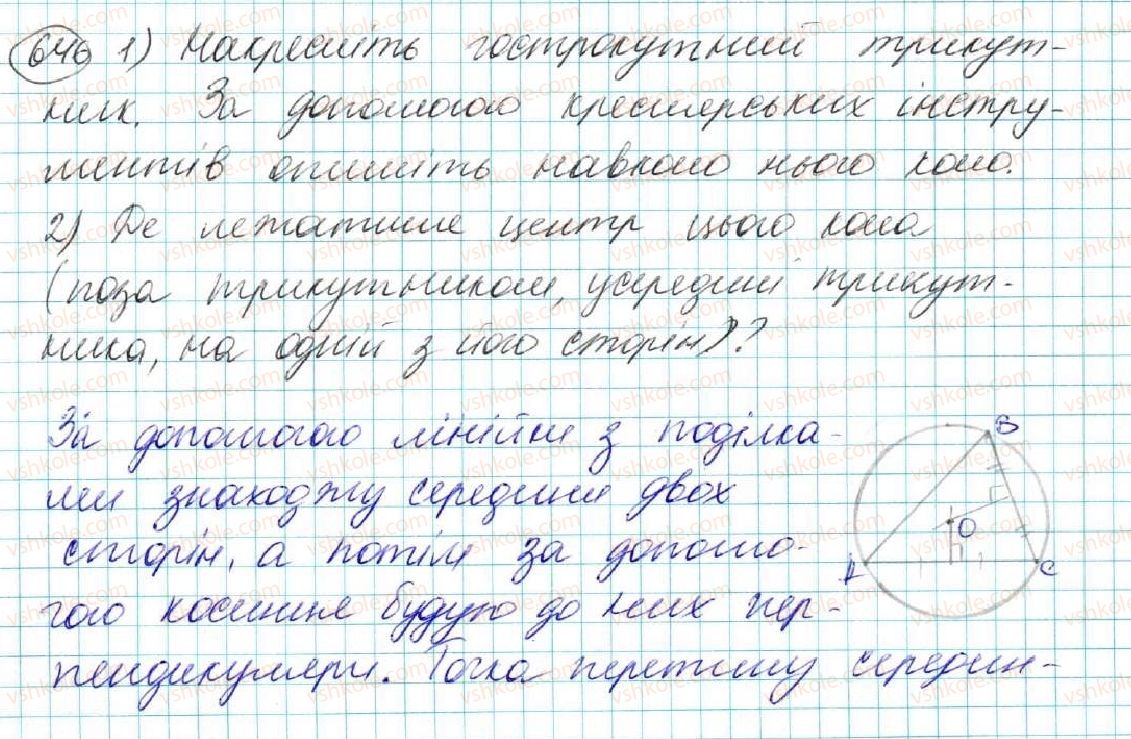 646 1) Накресліть гострокутний трикут-
ник. За допомогою креслярських інстру-
ментів опишіть навколо нього коло.
2) Де лежатиме центр цього кола
(поза трикутником, усередині трикут-
ника, на одній з його сторін)?
За допомогою лінійки з поділка-
ми знаходжу середини двох
сторін, а потім за допомо-
гою косинця будую до них пер-
пендикуляри. Точка перетину середин-
B
O
A
C
vshkole.com